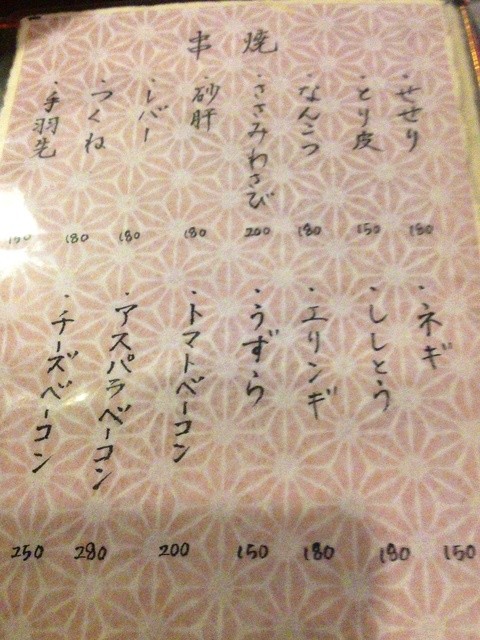 串焼
・せせり 180
・とり皮 150
・なんこつ 180
・ささみわさび 200
・砂肝 180
・レバー 180
・つくね 180
・手羽先
・ネギ 150
・ししとう 180
・エリンギ 180
・うずら 150
・トマトベーコン 200
・アスパラベーコン 280
・チーズベーコン 250